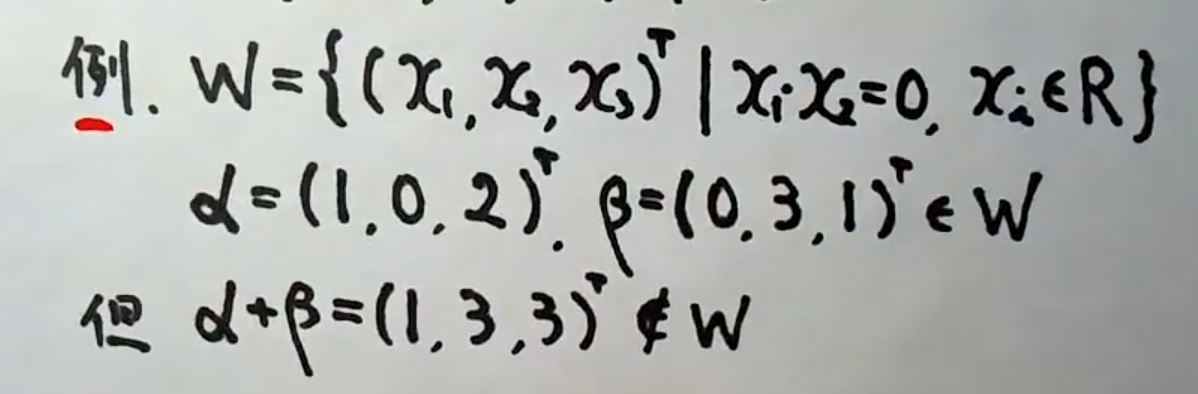 例. W={(x₁, x₂, x₃)ᵀ | x₁·x₂=0, xᵢ∈R}
α=(1, 0, 2)ᵀ. β=(0, 3, 1)ᵀ∈W
但 α+β=(1, 3, 3)ᵀ∉W